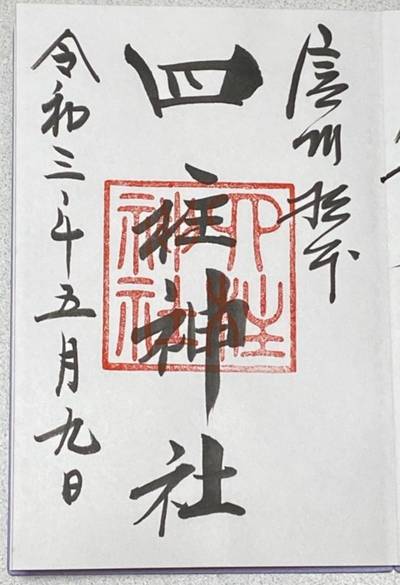 信州松本
四柱神社
四柱神社
令和三年五月九日